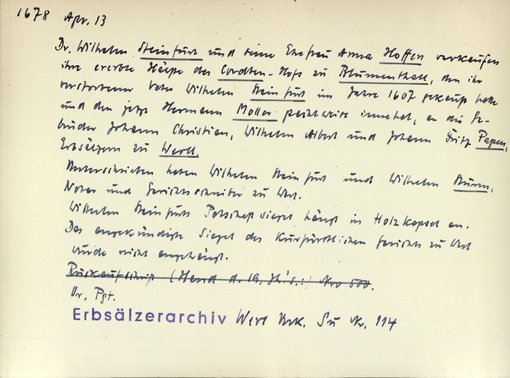 1678 Apr. 13
Dr. Wilhelm Steinfurt und seine Ehefrau Anna Hoffen verkaufen
ihre ererbte Hälfte des Cordten-Hofs zu Blumenthall, den ihr
verstorbener Vater Wilhelm Steinfurt im Jahre 1607 gekauft hatte
und den jetzt Hermann Moller pachtweise innehat, an die Ge-
brüder Johann Christian, Wilhelm Albert und Johann Fritz Papen,
Erbsälzer zu Werll.
Unterschrieben haben Wilhelm Steinfurt und Wilhelm
Notar und Gerichtsschreiber zu Werl.
Wilhelm Steinfurts Petschaftsiegel hängt in Holzkapsel an.
Das angekündigte Siegel des Kurfürstlichen Gerichts zu Werl
wurde nicht angehängt.
Rückaufschrift (Hand d. 18. Jh's.: Nro 500.
Or. Pgt.
Erbsälzerarchiv Werl Urk. Su Nr. 114